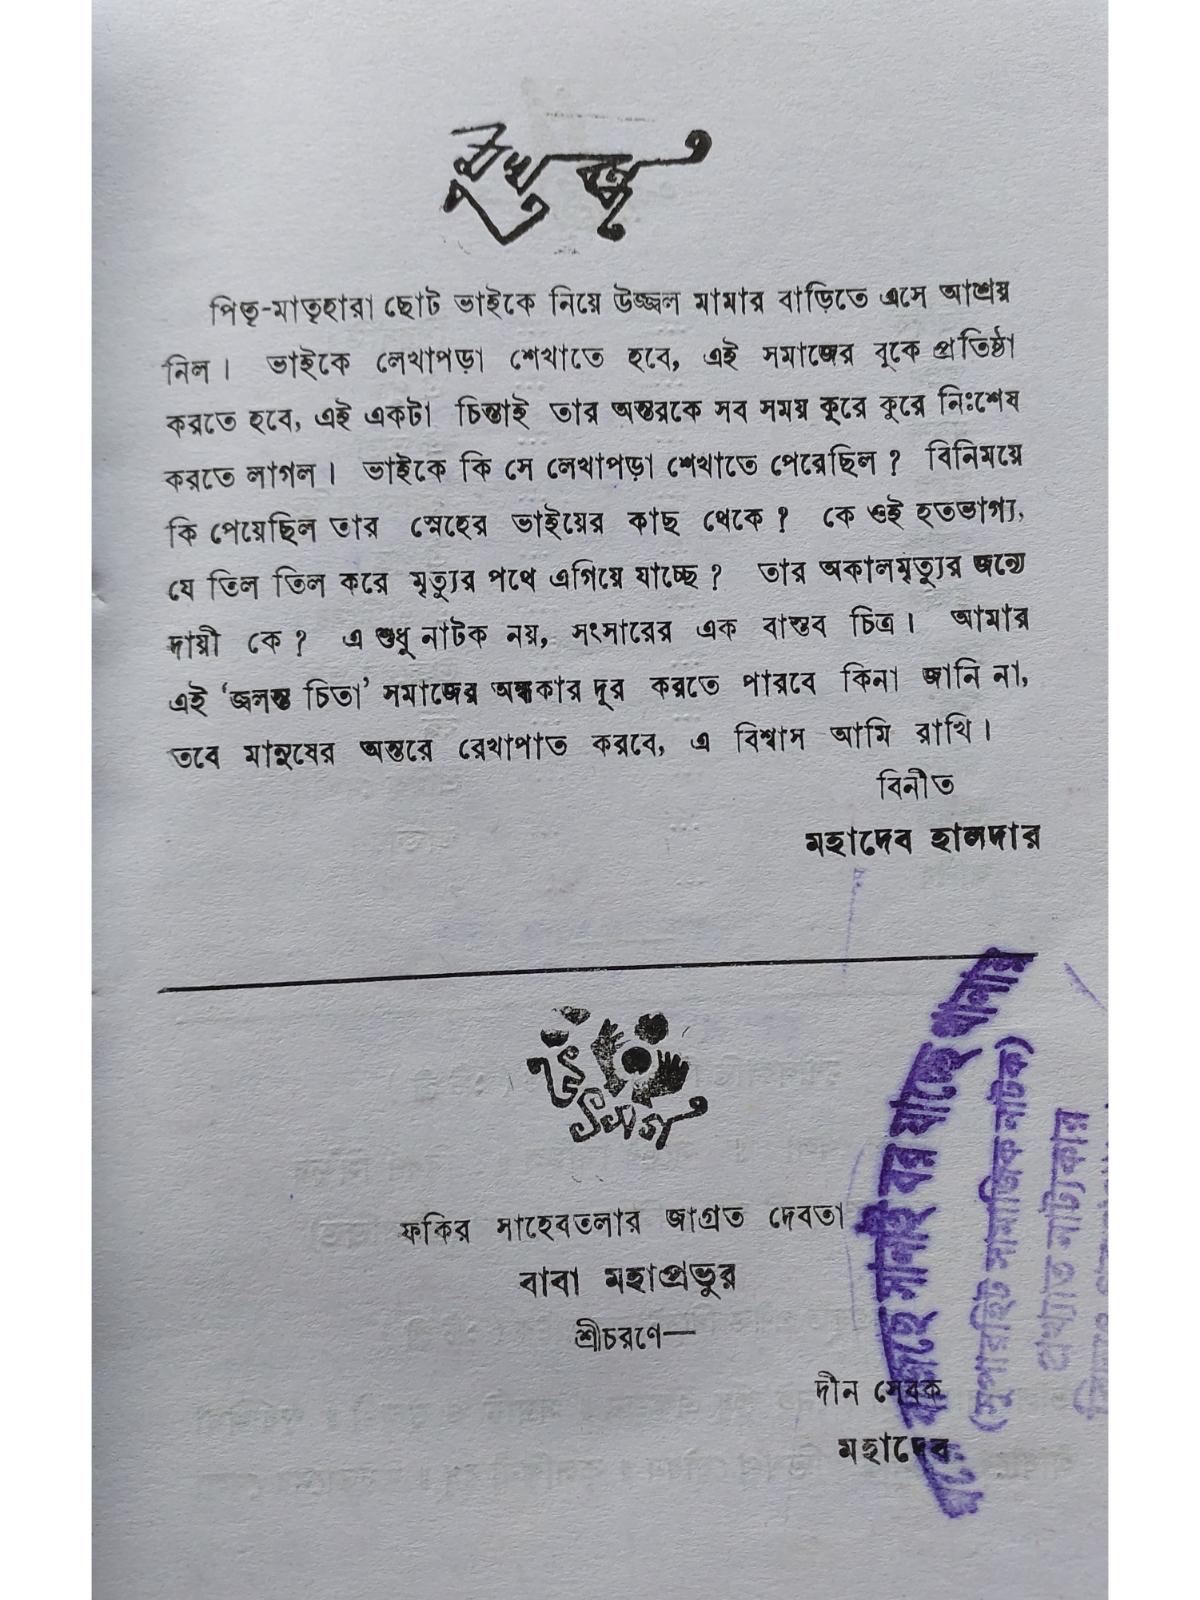 মুখবন্ধ
পিতৃ-মাতৃহারা ছোট ভাইকে নিয়ে উজ্জল মামার বাড়িতে এসে আশ্রয়
নিল। ভাইকে লেখাপড়া শেখাতে হবে, এই সমাজের বুকে প্রতিষ্ঠা
করতে হবে, এই একটা চিন্তাই তার অন্তরকে সব সময় কুরে কুরে নিঃশেষ
করতে লাগল। ভাইকে কি সে লেখাপড়া শেখাতে পেরেছিল? বিনিময়ে
কি পেয়েছিল তার স্নেহের ভাইয়ের কাছ থেকে? কে ওই হতভাগ্য,
যে তিল তিল করে মৃত্যুর পথে এগিয়ে যাচ্ছে? তার অকালমৃত্যুর জন্যে
দায়ী কে? এ শুধু নাটক নয়, সংসারের এক বাস্তব চিত্র। আমার
এই ‘জ্বলন্ত চিতা’ সমাজের অন্ধকার দূর করতে পারবে কিনা জানি না,
তবে মানুষের অন্তরে রেখাপাত করবে, এ বিশ্বাস আমি রাখি।
বিনীত
মহাদেব হালদার
উৎসর্গ
ফকির সাহেবতলার জাগ্রত দেবতা
বাবা মহাপ্রভুর
শ্রীচরণে—
দীন সেবক
মহাদেব
বাজছে সানাই বর যাচ্ছে থানায়
(সুপারহিট সামাজিক নাটক)
প্রখ্যাত নাট্যকার